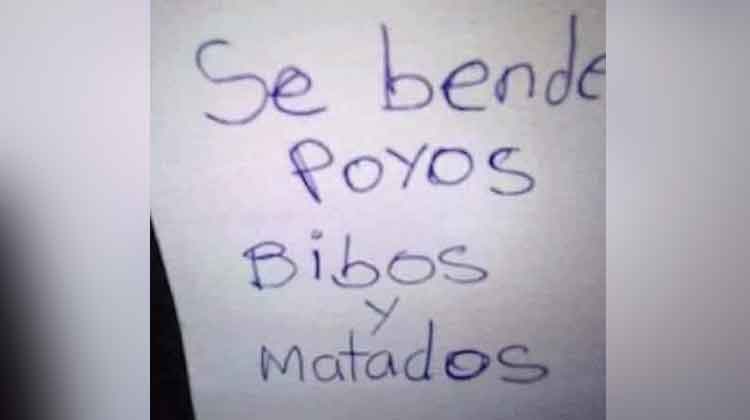 Se bende
POYOS
Bibos
y
Matados